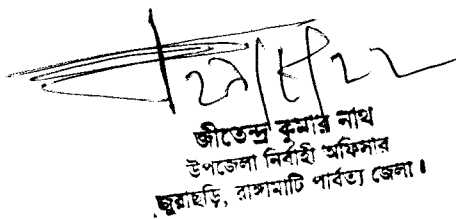 জীতেন্দ্র কুমার নাথ
উপজেলা নির্বাহী অফিসার
জুরাছড়ি, রাঙ্গামাটি পার্বত্য জেলা।